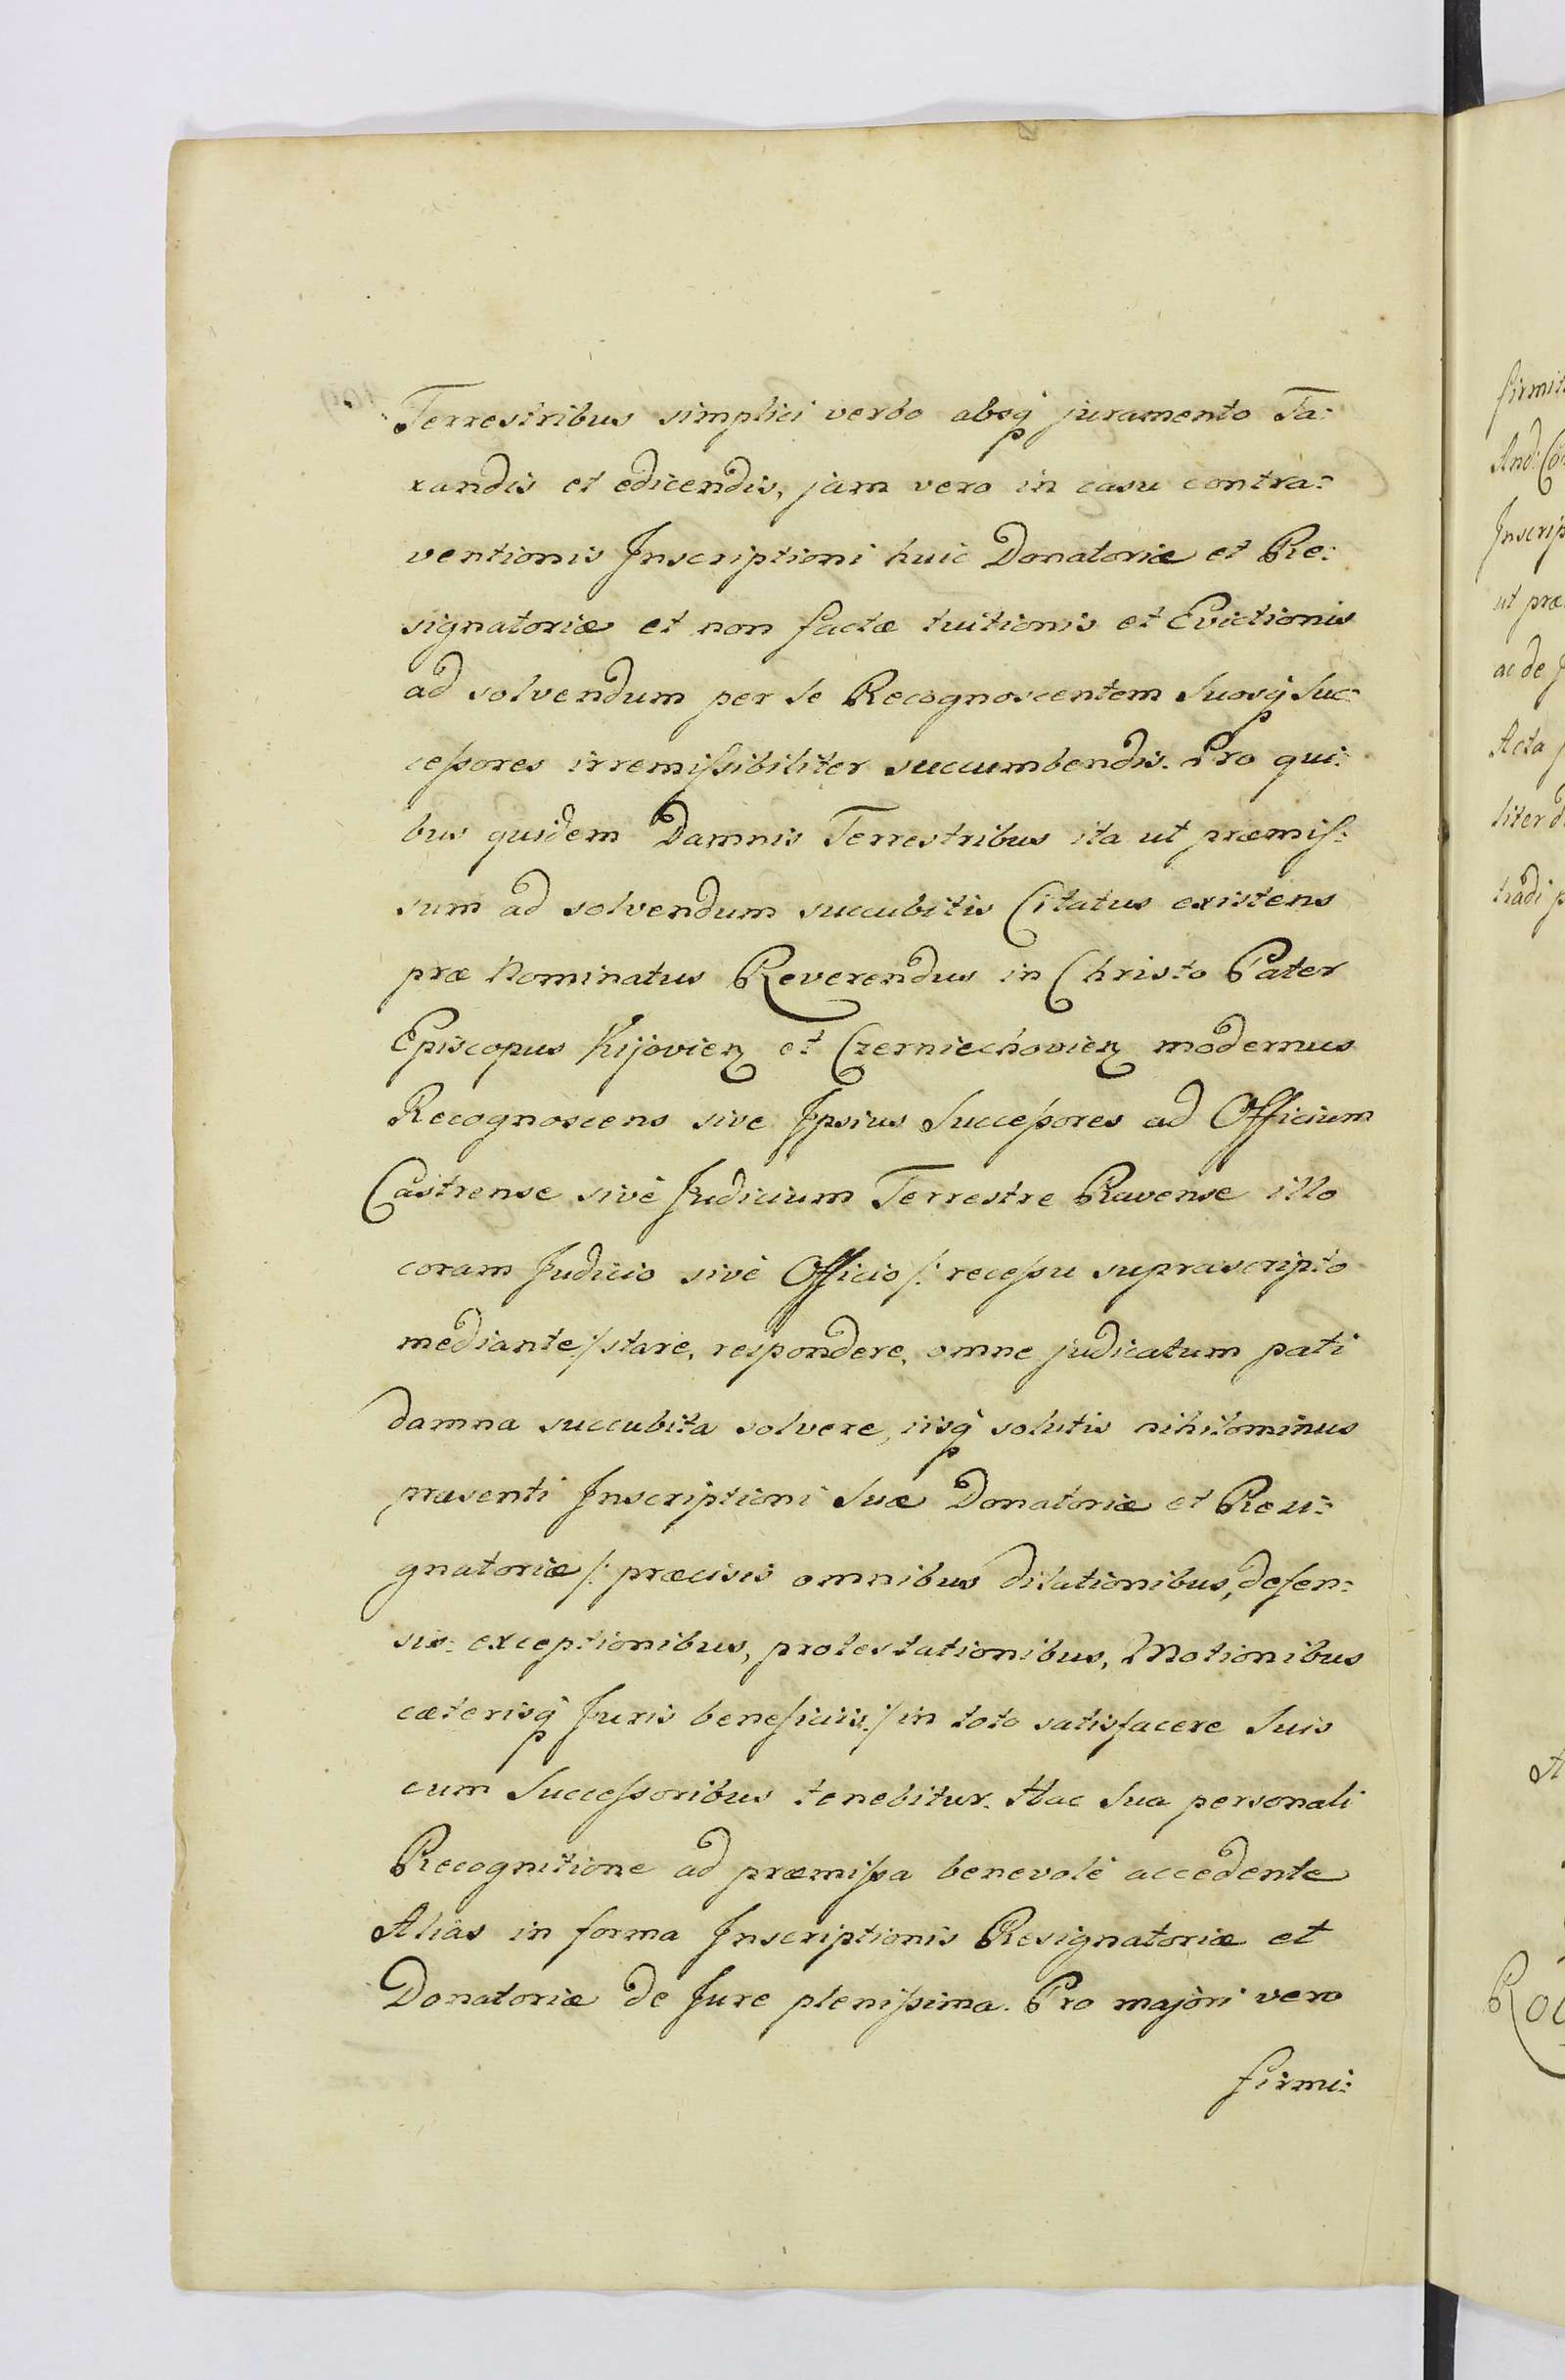 Terrestribus simplici verbo absq juramento Ta:
xandis et edicendis, jam vero in casu contra:
ventionis Inscriptioni huic Donatoriæ et Re:
signatoriæ et non factæ tuitionis et Evictionis
ad solvendum per se Recognoscentem Suosq Suc:
ceſsores irremiſsibiliter succumbendis. Pro qui:
bus quidem Damnis Terrestribus ita ut præmiſ:
sum ad solvendum succubitis Citatus existens
præ Nominatus Reverendus in Christo Pater
Episcopus Kijovien et Czerniechovien modernus
Recognoscens sive Ipsius Succeſsores ad Officium
Castrense sivè Judicium Terrestre Ravense illo
coram Judicio sivè Officio /: receſsu suprascripto
mediante :/ stare, respondere, omne judicatum pati
damna succubita solvere, iisq solutis nihilominus
præsenti Inscriptioni Suæ Donatoriæ et Resi:
gnatoriæ /: præcisis omnibus dilationibus, defen:
sis: exceptionibus, protestationibus, Motionibus
cæterisq Juris beneficiis :/ in toto satisfacere Suis
cum Succeſsoribus tenebitur. Hac Sua personali
Recognitione ad præmiſsa benevolè accedente
Aliàs in forma Inscriptionis Resignatoriæ et
Donatoriæ de Jure pleniſsima. Pro majori vero
firmi:
firmit
And: Co
Inscrip
ut præ
ac de J
Acta
liter d
tradi p
A
Ro